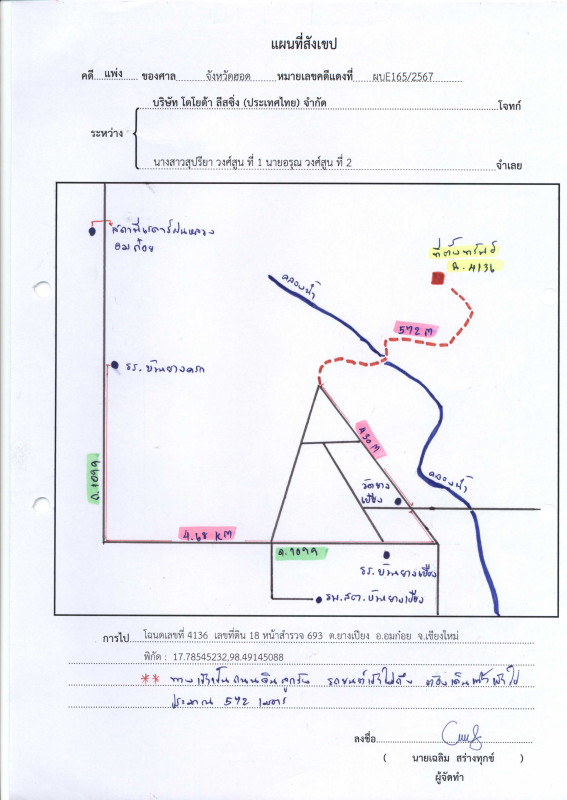 แผนที่สังเขป
คดี แพ่ง ของศาล จังหวัดฮอด หมายเลขคดีแดงที่ ผบE165/2567
บริษัท โตโยต้า ลีสซิ่ง (ประเทศไทย) จำกัด โจทก์
ระหว่าง
นางสาวสุปรียา วงศ์สูน ที่ 1 นายอรุณ วงศ์สูน ที่ 2 จำเลย
สถานีเรดาร์ฝนหลวง
อมก๋อย
ที่ตั้งทรัพย์
ฉ.4136
คลองน้ำ
572 M
รร.บ้านยางครก
430 M
ถ.1099
วัดยาง
เปียง
คลองน้ำ
4.68 KM
ถ.1099
รร.บ้านยางเปียง
รพ.สต.บ้านยางเปียง
การไป โฉนดเลขที่ 4136 เลขที่ดิน 18 หน้าสำรวจ 693 ต.ยางเปียง อ.อมก๋อย จ.เชียงใหม่
พิกัด : 17.78545232,98.49145088
** ทางเข้าเป็นถนนดินลูกรัง รถยนต์เข้าไม่ถึง ต้องเดินเท้าเข้าไป
ประมาณ 572 เมตร
ลงชื่อ
( นายเฉลิม สร่างทุกข์ )
ผู้จัดทำ